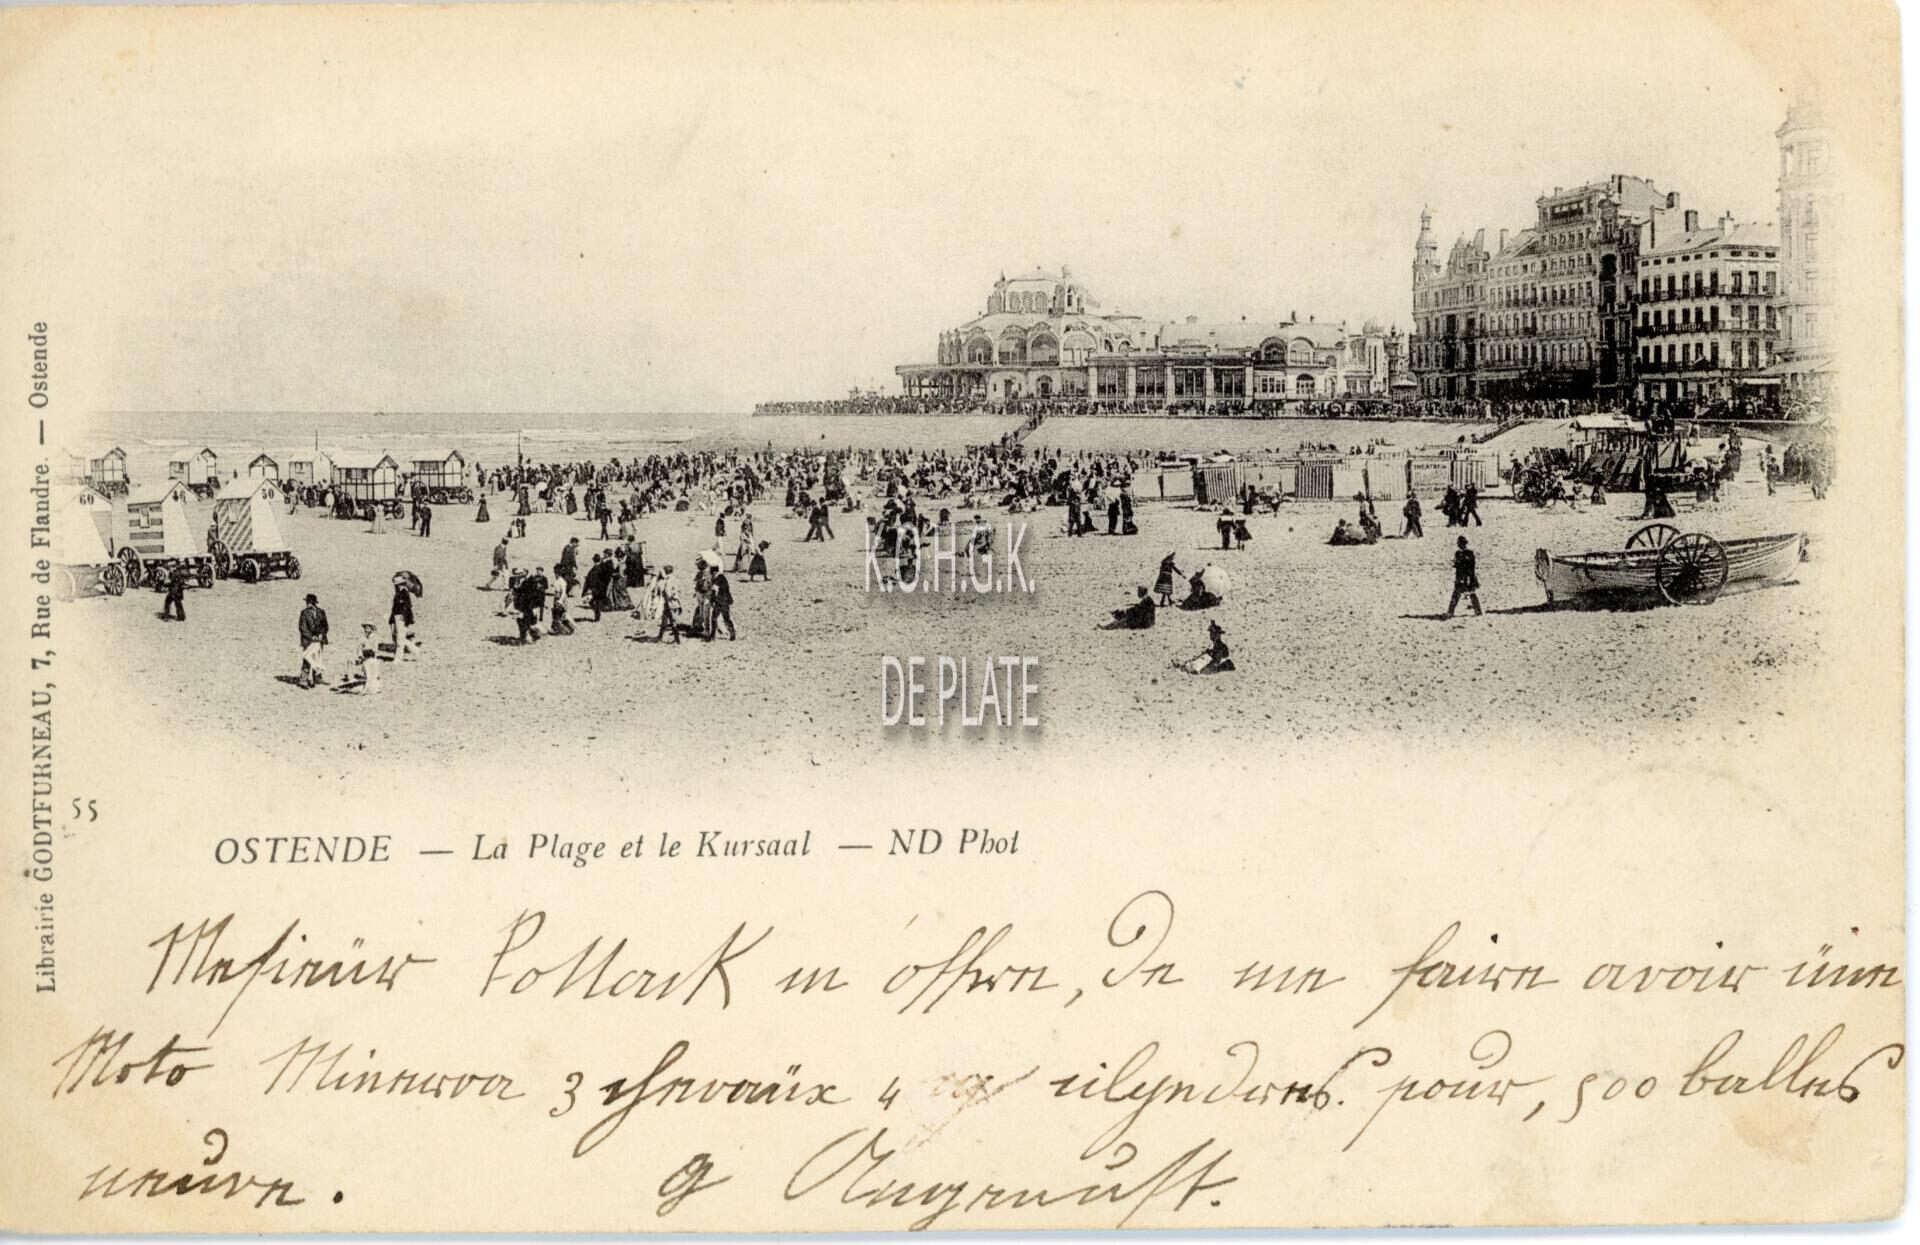 Librairie GODTFURNEAU, 7, Rue de Flandre. — Ostende
60
50
THEATRE
K.O.H.G.K.
DE PLATE
55
OSTENDE — La Plage et le Kursaal — ND Phot
Mesieür Pollack m'offre, De me faire avoir üne
Moto Minerva 3 chevaüx 4 cilyndres. pour, 500 balles
neuve. g